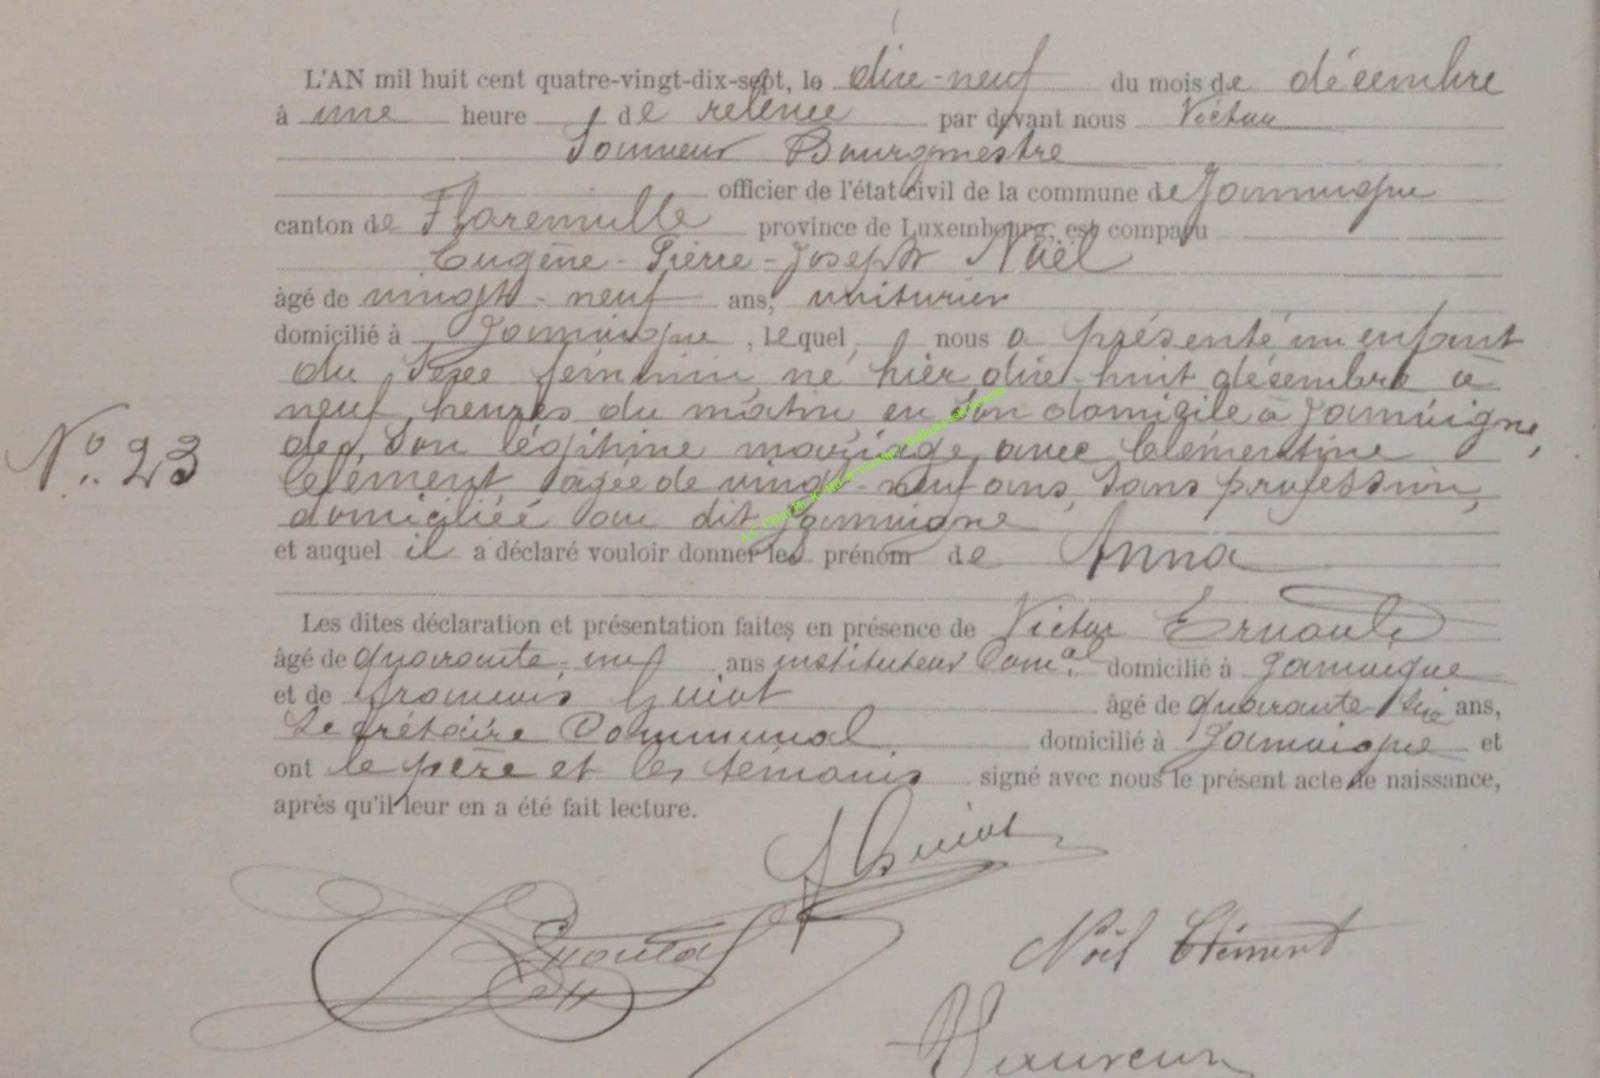 L'AN mil huit cent quatre-vingt-dix-sept, le dix-neuf du mois de décembre
à une heure de relevée par devant nous Victor
Bourgmestre
officier de l'état civil de la commune de Jamoigne
canton de Florenville province de Luxembourg, est comparu
Eugène-Pierre-Joseph Noël
âgé de vingt-neuf ans, voiturier
domicilié à Jamoigne, lequel nous a présenté un enfant
du sexe féminin, né hier dix-huit décembre à
neuf heures du matin en son domicile à Jamoigne,
de son légitime mariage avec Clémentine
Clément, âgée de vingt-neuf ans, sans profession,
domiciliée au dit Jamoigne
et auquel il a déclaré vouloir donner les prénom de Anna
N° 23
Les dites déclaration et présentation faites en présence de Victor
âgé de quarante-neuf ans instituteur Com.al domicilié à Jamoigne
et de François Guiot âgé de quarante-six ans,
Secrétaire Communal domicilié à Jamoigne et
ont le père et les témoins signé avec nous le présent acte de naissance,
après qu'il leur en a été fait lecture.
Guiot
Noël Clément